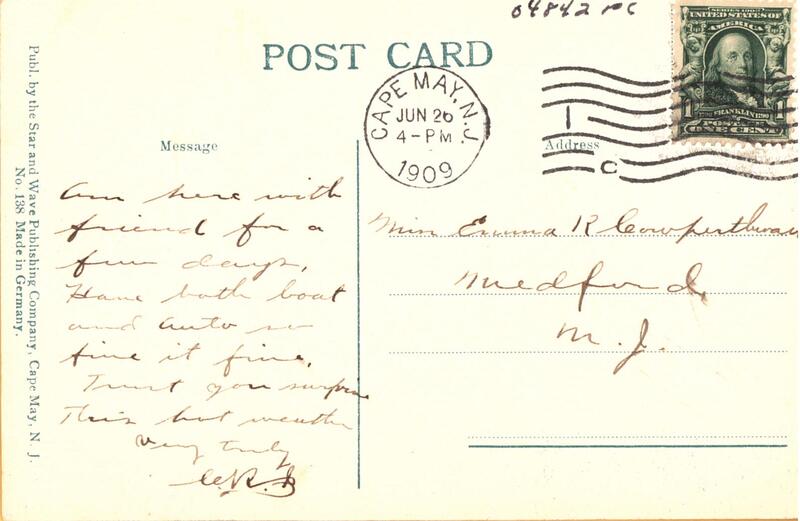 04842 PC
POST CARD
SERIES 1902
UNITED STATES OF
AMERICA
1 FRANKLIN 1
POSTAGE
ONE CENT
CAPE MAY, N.J.
JUN 26
4-PM
1909
1
C
Message
Address
Am here with
friend for a
few days,
Have both boat
and auto so
fine it fine,
Trust you
This hot weather
Very truly
Miss Emma R Cowperthwai
Medford,
N. J.
Publ. by the Star and Wave Publishing Company, Cape May, N. J.
No. 138 Made in Germany.